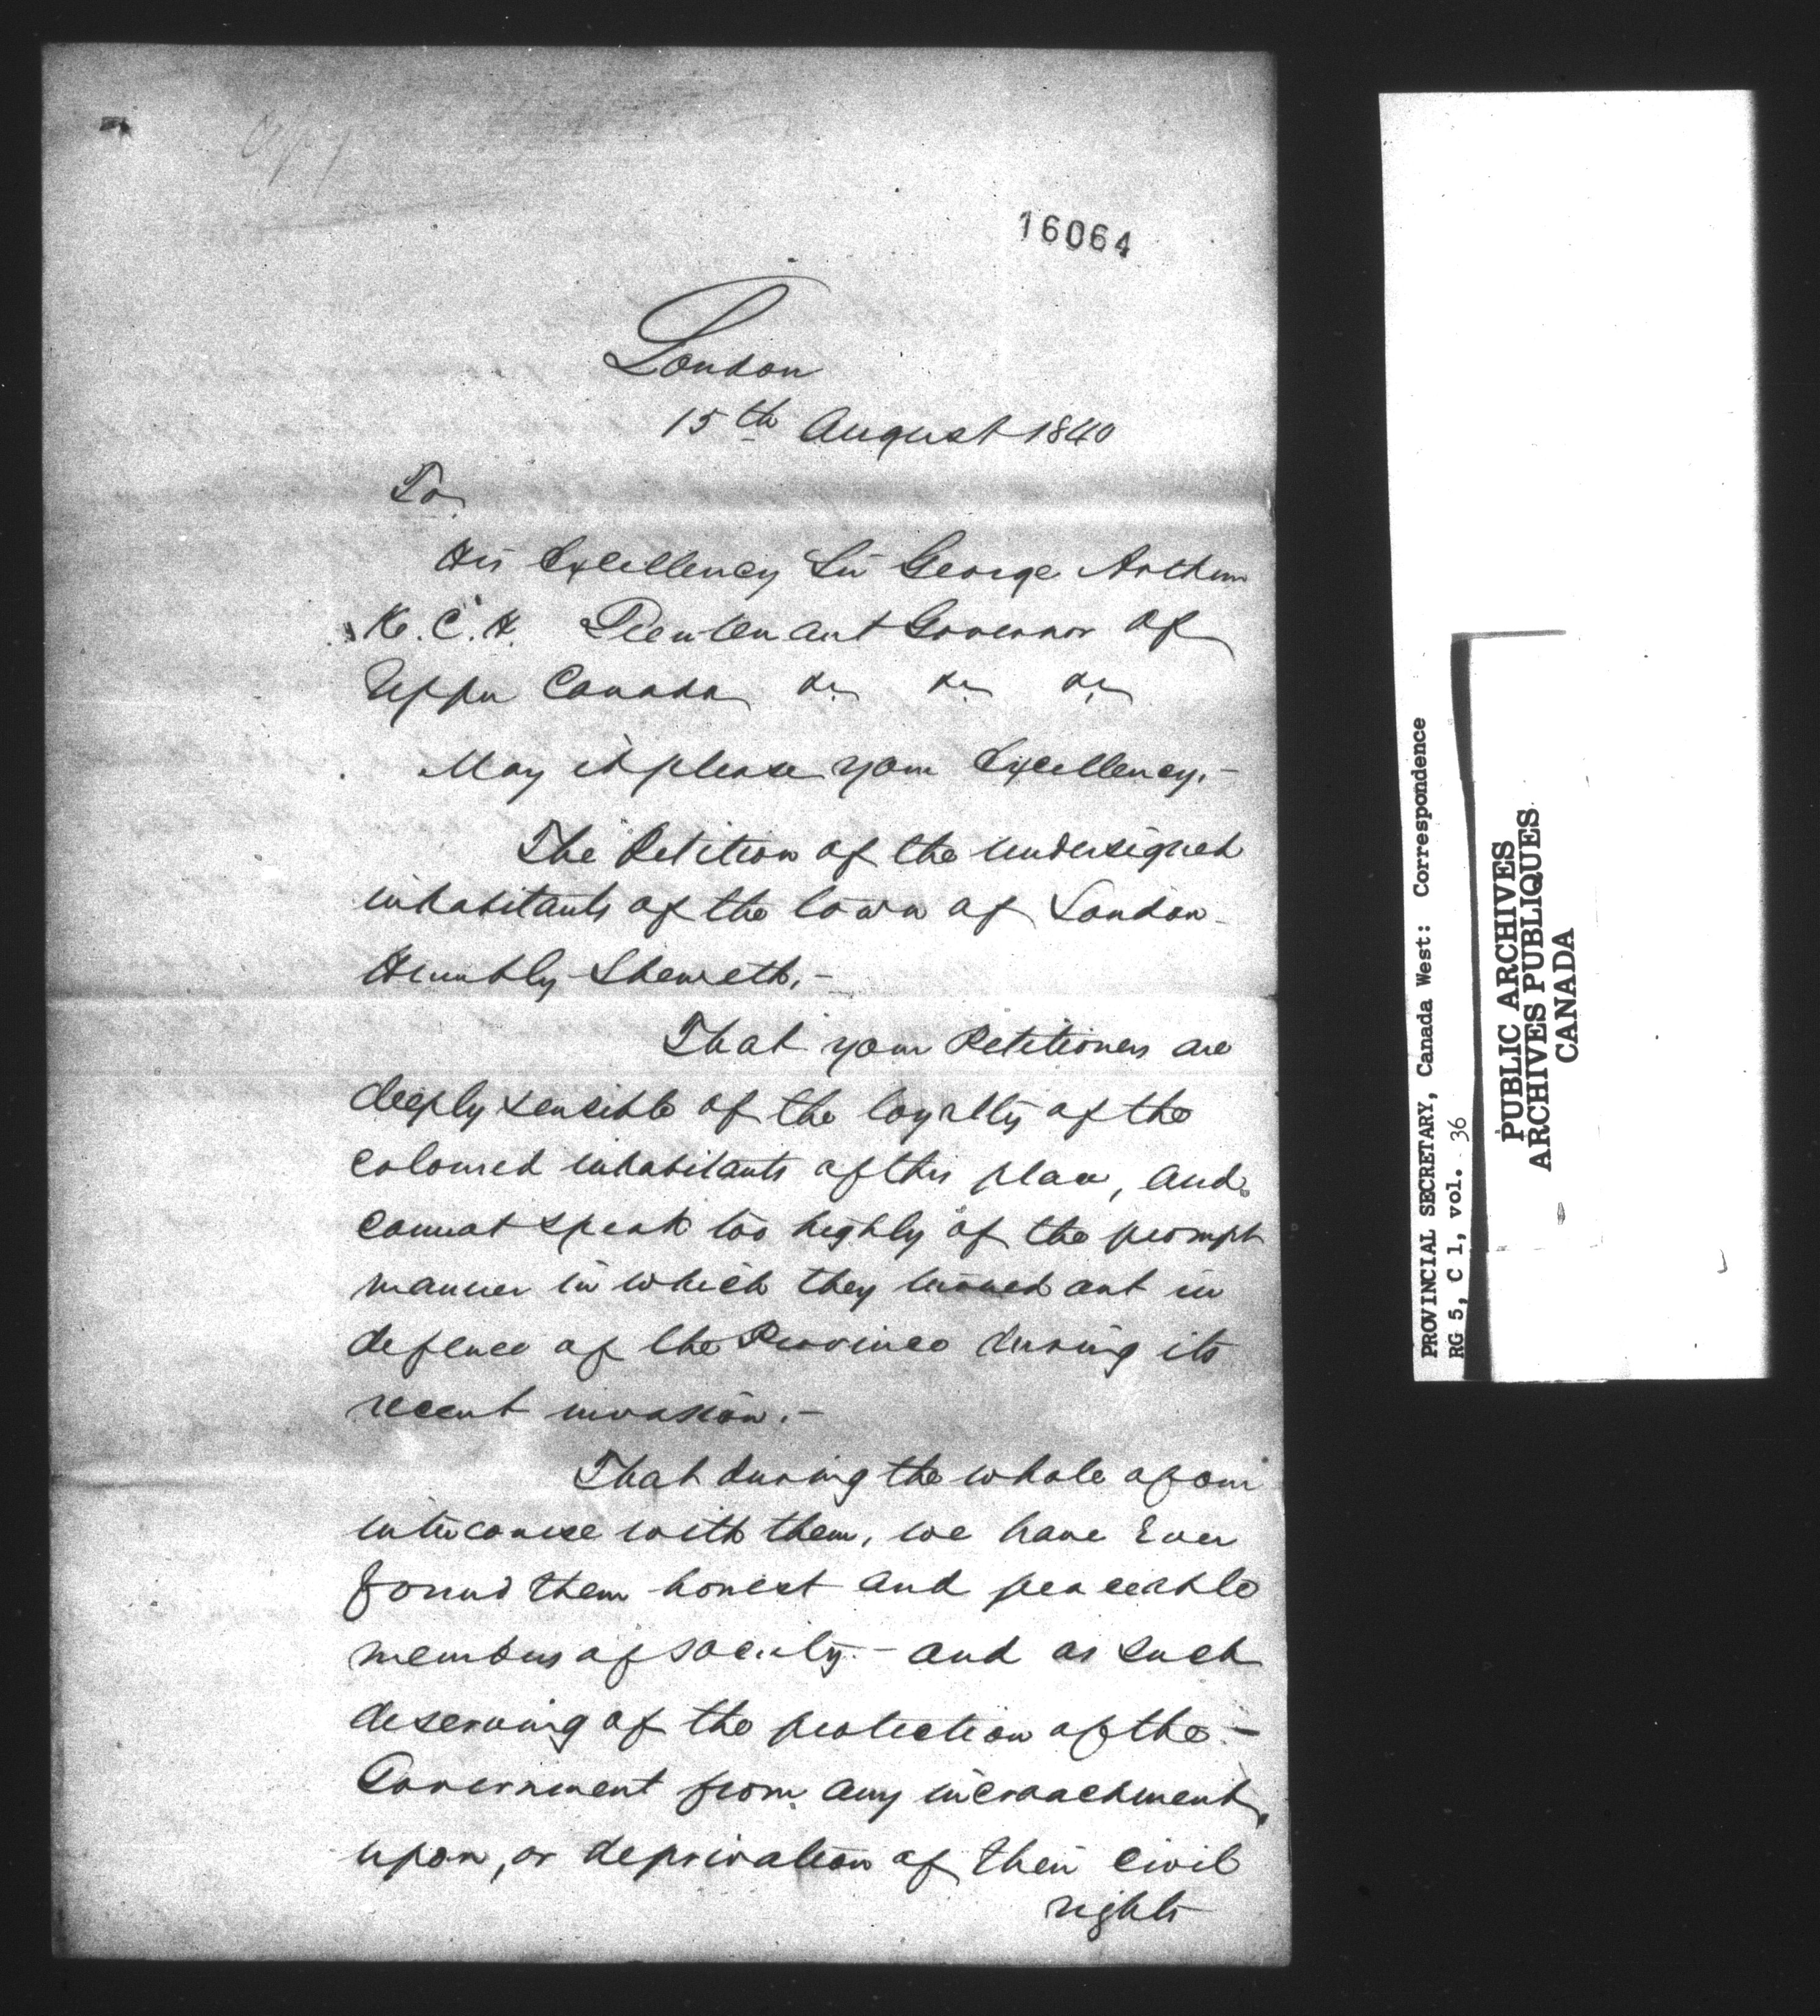 Copy
16064
London
15th August 1840
To
His Excellency Sir George Arthur
K.C.H. Lieutenant Governor of
Upper Canada &c &c &c
May it please your Excellency.-
The Petition of the undersigned
inhabitants of the town of London
Humbly Sheweth,-
That your Petitioners are
deeply sensible of the loyalty of the
coloured inhabitants of this place, and
cannot speak too highly of the prompt
manner in which they turned out in
defence of the Province during its
recent invasion.-
That during the whole of our
intercourse with them, we have Ever
found them honest and peaceable
members of society.- and as such
deserving of the protection of the-
Government from any incroachment,
upon, or deprivation of their civil
rights
PROVINCIAL SECRETARY, Canada West: Correspondence
RG 5, C 1, vol. 36
PUBLIC ARCHIVES
ARCHIVES PUBLIQUES
CANADA